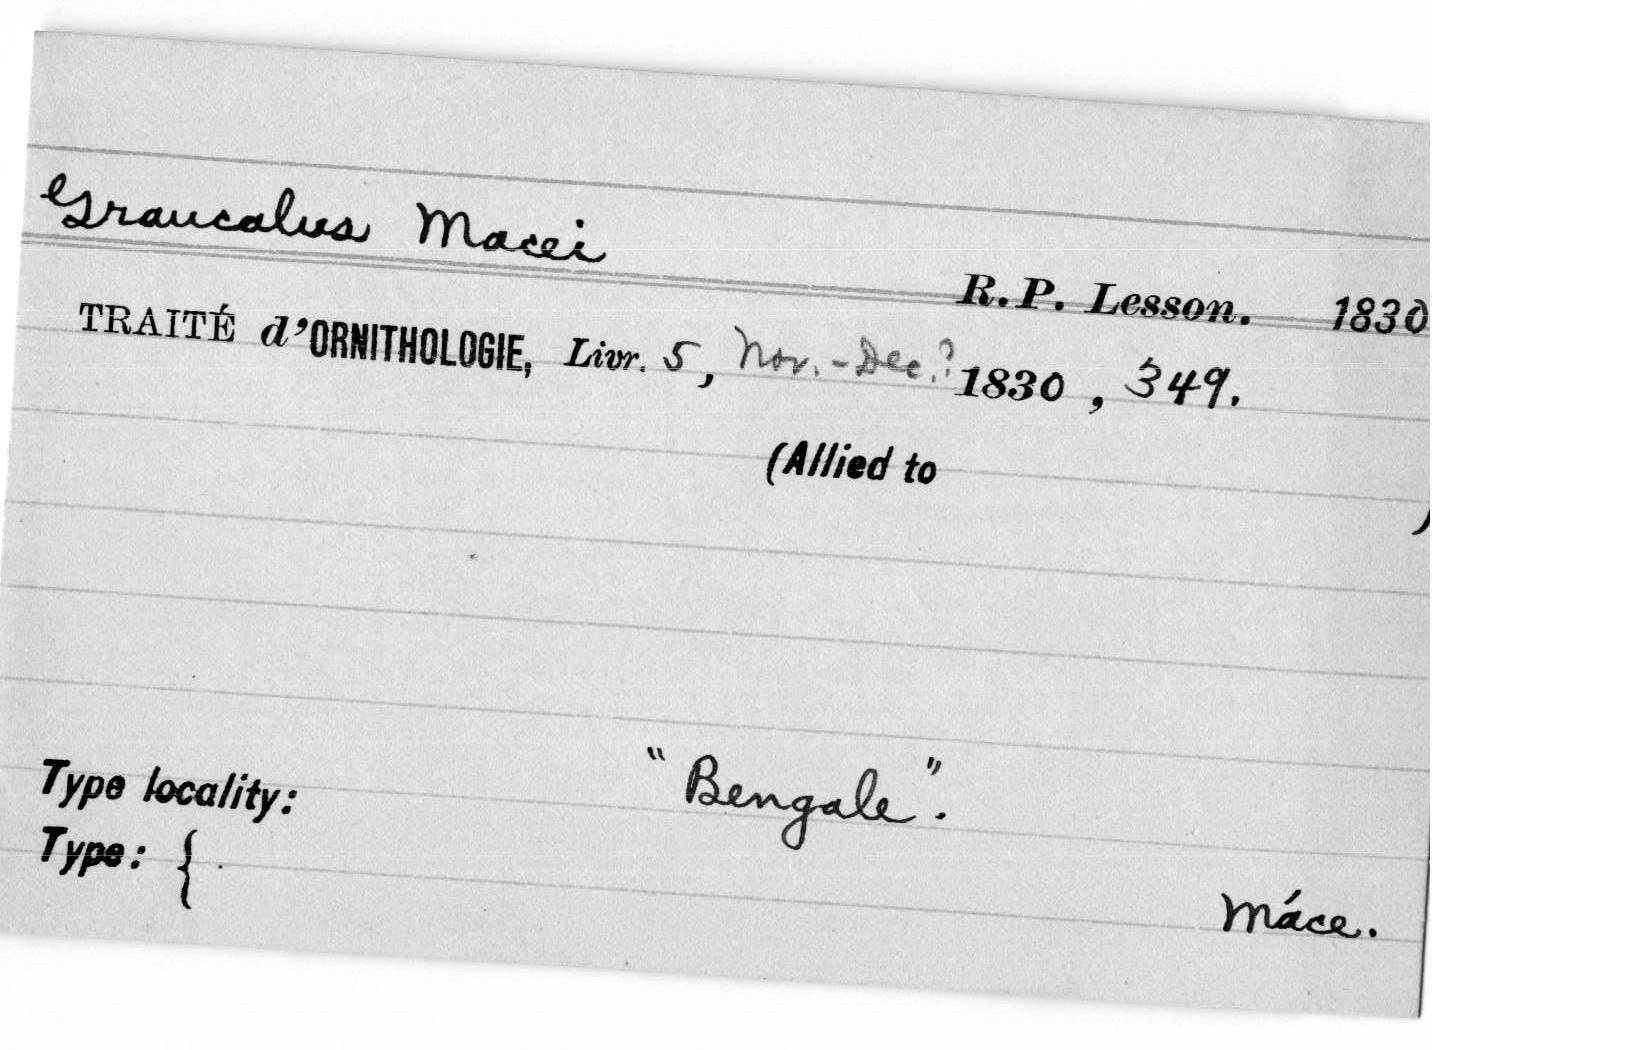 Graucalus Macei
R.P. Lesson. 1830
TRAITÉ d'ORNITHOLOGIE, Livr. 5, Nov.-Dec.? 1830, 349.
(Allied to
)
Type locality: "Bengale".
Type: {
Máce.